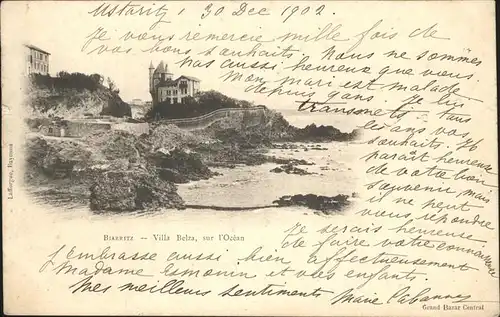 Ustaritz, 30 Dec 1902.
Je vous remercie mille fois de
vos bons souhaits. Nous ne sommes
pas aussi heureux que vous
mon mari est malade
depuis
je lui
transmets tous
les
vos
souhaits. Je
paraît heureuse
de votre bon
souvenir mais
il ne peut
vous répondre
Je serais heureuse
de faire votre connaissance
J'embrasse aussi bien affectueusement
Madame et vos enfants.
Mes meilleurs sentiments Marie
Biarritz — Villa Belza, sur l'Océan
Grand Bazar Central